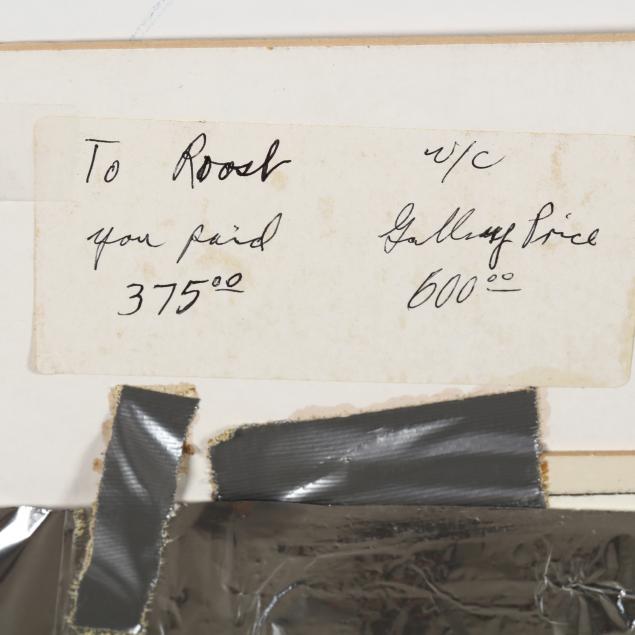 To Roost w/c
you paid Gallery Price
375.00 600.00